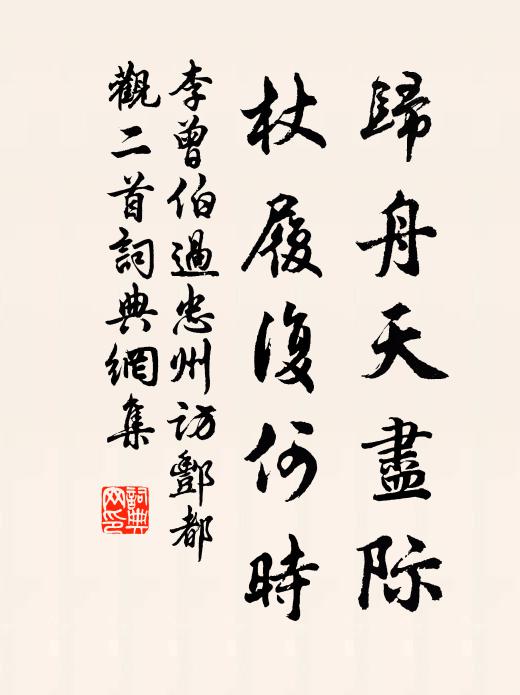 歸舟天盡際
杖履復何時
李曾伯過忠州訪酆都
觀二首詞典網集
詞典網印